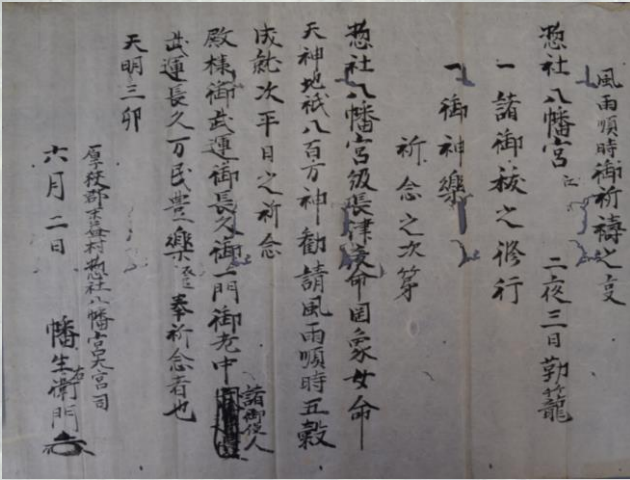 風雨順時御祈祷之事
惣社八幡宮江 二夜三日勤籠
一諸御祓之修行
一御神樂
祈念之次第
惣社八幡宮級長津彦命罔象女命
天神地祇八百万神勧請風雨順時五穀
成就次平日之祈念
殿様御武運御長久御一門御老中諸御役人
武運長久万民豊樂 奉祈念者也
天明三卯
厚狭郡末益村惣社八幡宮大宮司
六月二日 幡生右衛門